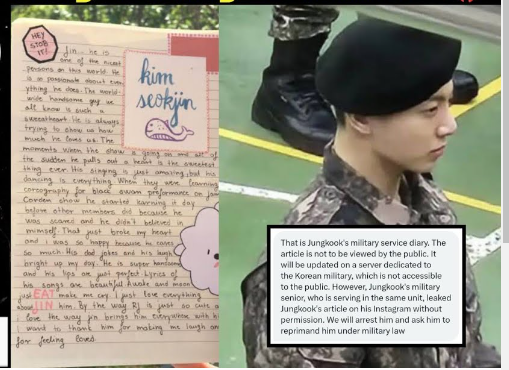 HEY
STOP
IT!
Jin.. he is
one of the nicest
persons on this world. He
is so passionate about ever
ything he does. The world
wide handsome guy we
all know is such a
sweetheart. He is always
trying to show us how
much he loves us. The
kim
seokjin
moments when the show is going on and all of
the sudden he pulls out a heart is the sweetest
thing ever. His singing is just amazing, but his
dancing is everything. When they were learning
coreography for black swan preformance on Jam
Corden show he started learning it day
before other members did because he
was scared and he didn't believed in
mimself. That just broke my heart
and i was so happy because he cares
so much. His dad jokes and his laugh
bright up my day. He is super handsome
and his lips are just perfect. Lyrics of
his songs are beautiful Awake and moon
just make me cry. I just love everything
EAT
JIN
about him. By the way RJ is just so cute a
i love the way jin brings him everywhere with hi
I want to thank him for making me laugh an
for feeling loved.
That is Jungkook's military service diary. The
article is not to be viewed by the public. It
will be updated on a server dedicated to
the Korean military, which is not accessible
to the public. However, Jungkook's military
senior, who is serving in the same unit, leaked
Jungkook's article on his Instagram without
permission. We will arrest him and ask him to
reprimand him under military law